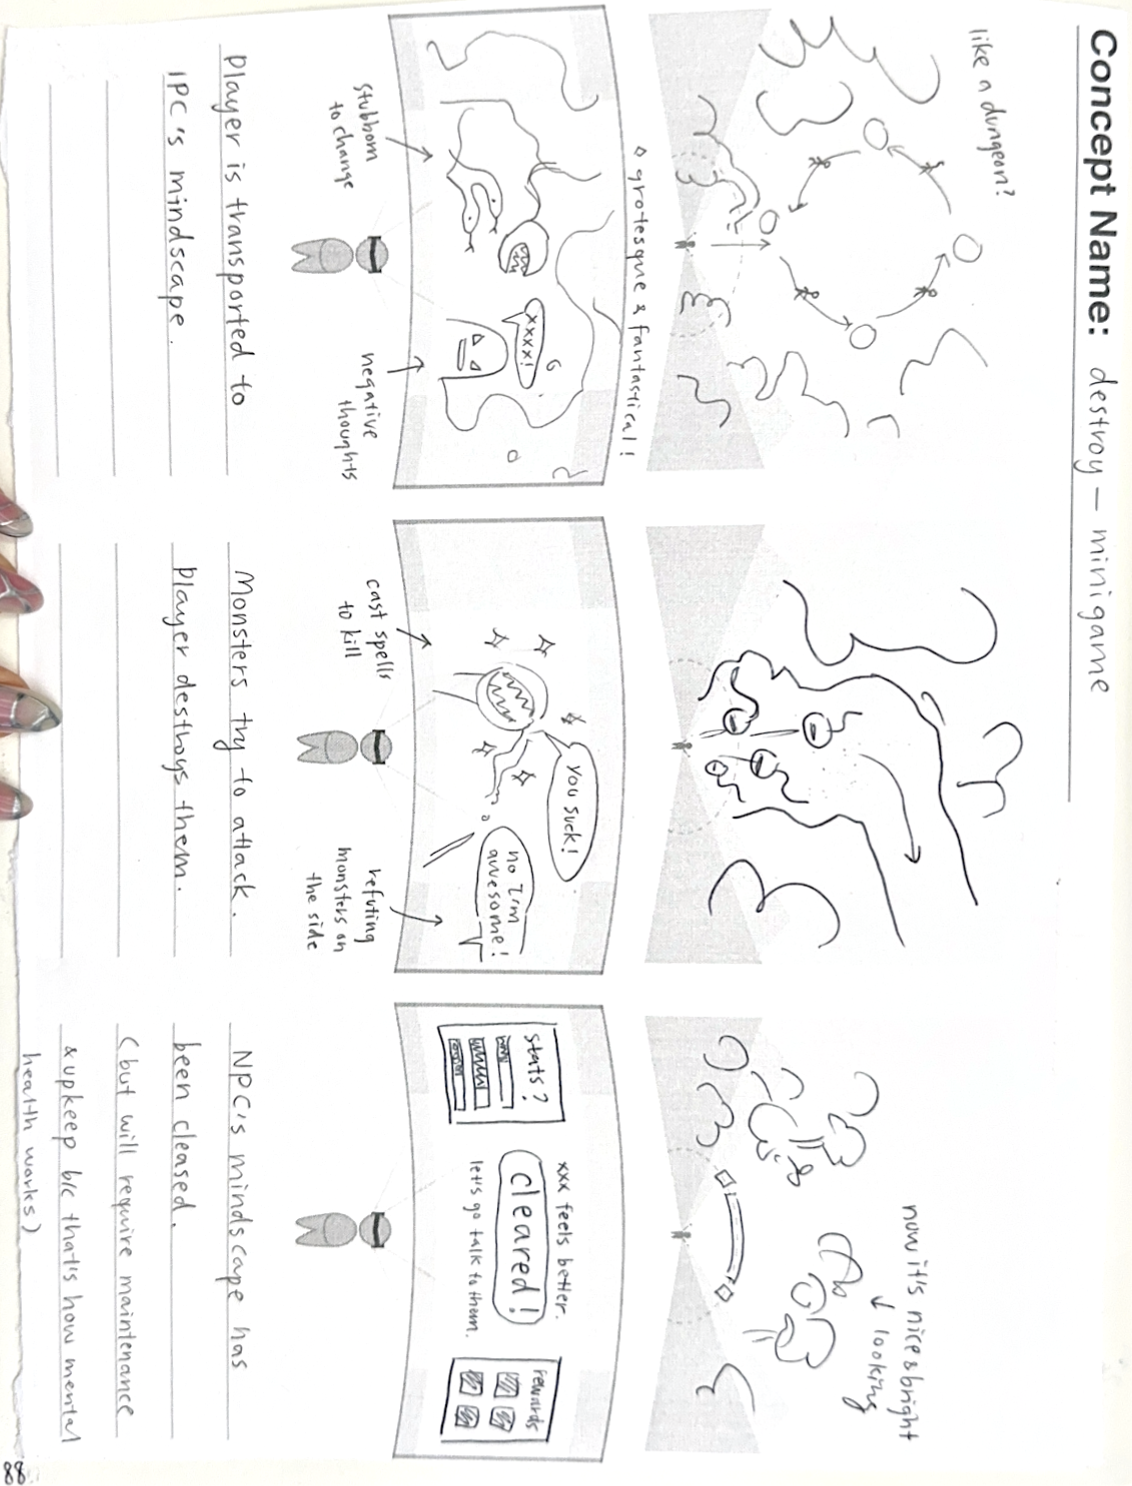 Concept Name: destroy – minigame
like a dungeon?
△ grotesque & fantastical!
xxxx!
stubborn
to change
negative
thoughts
Player is transported to
IPC's mindscape.
you suck!
no I'm
awesome!
cast spells
to kill
refuting
monsters on
the side
Monsters try to attack.
Player destroys them.
now it's nice & bright
looking
stats?
xxx feels better.
cleared!
let's go talk to them.
rewards
NPC's mindscape has
been cleased.
(but will require maintenance
& upkeep b/c that's how mental
health works)
88